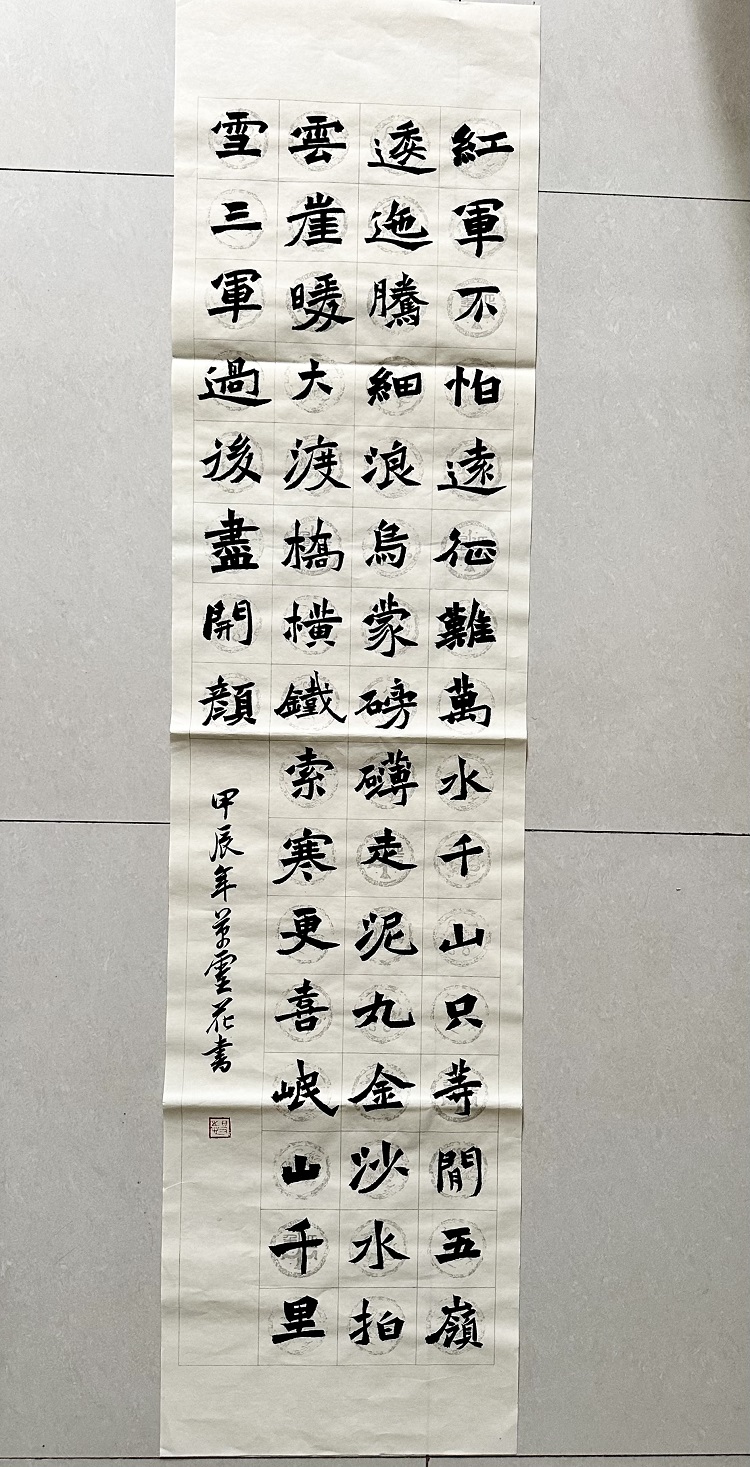 紅軍不怕遠征難萬水千山只等閒五嶺
逶迤騰細浪烏蒙磅礴走泥丸金沙水拍
雲崖暖大渡橋橫鐵索寒更喜岷山千里
雪三軍過後盡開顏
甲辰年花書